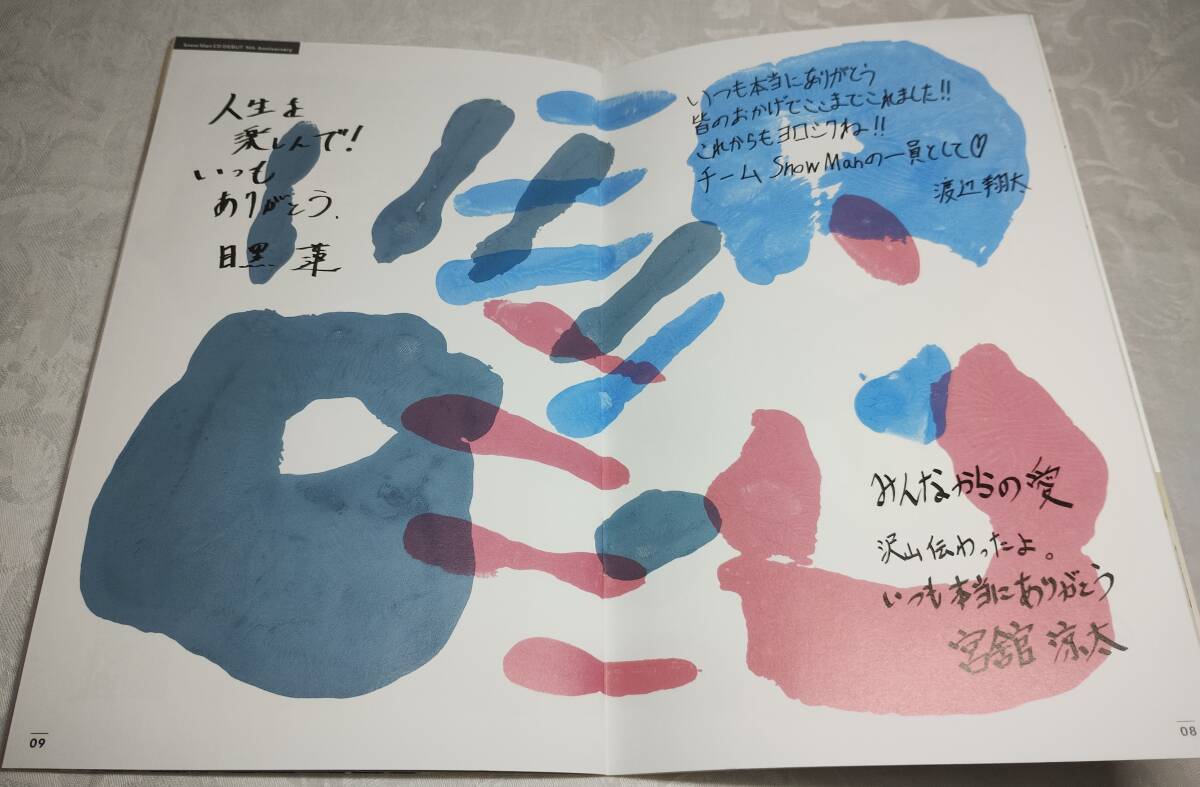 Snow Man CD DEBUT 5th Anniversary
人生を
楽しんで!
いつも
ありがとう.
目黒 蓮
いつも本当にありがとう
皆のおかげでここまでこれました!!
これからもヨロシクね!!
チーム Snow Manの一員として♡
渡辺翔太
みんなからの愛
沢山伝わったよ。
いつも本当にありがとう
宮舘 涼太
09
08